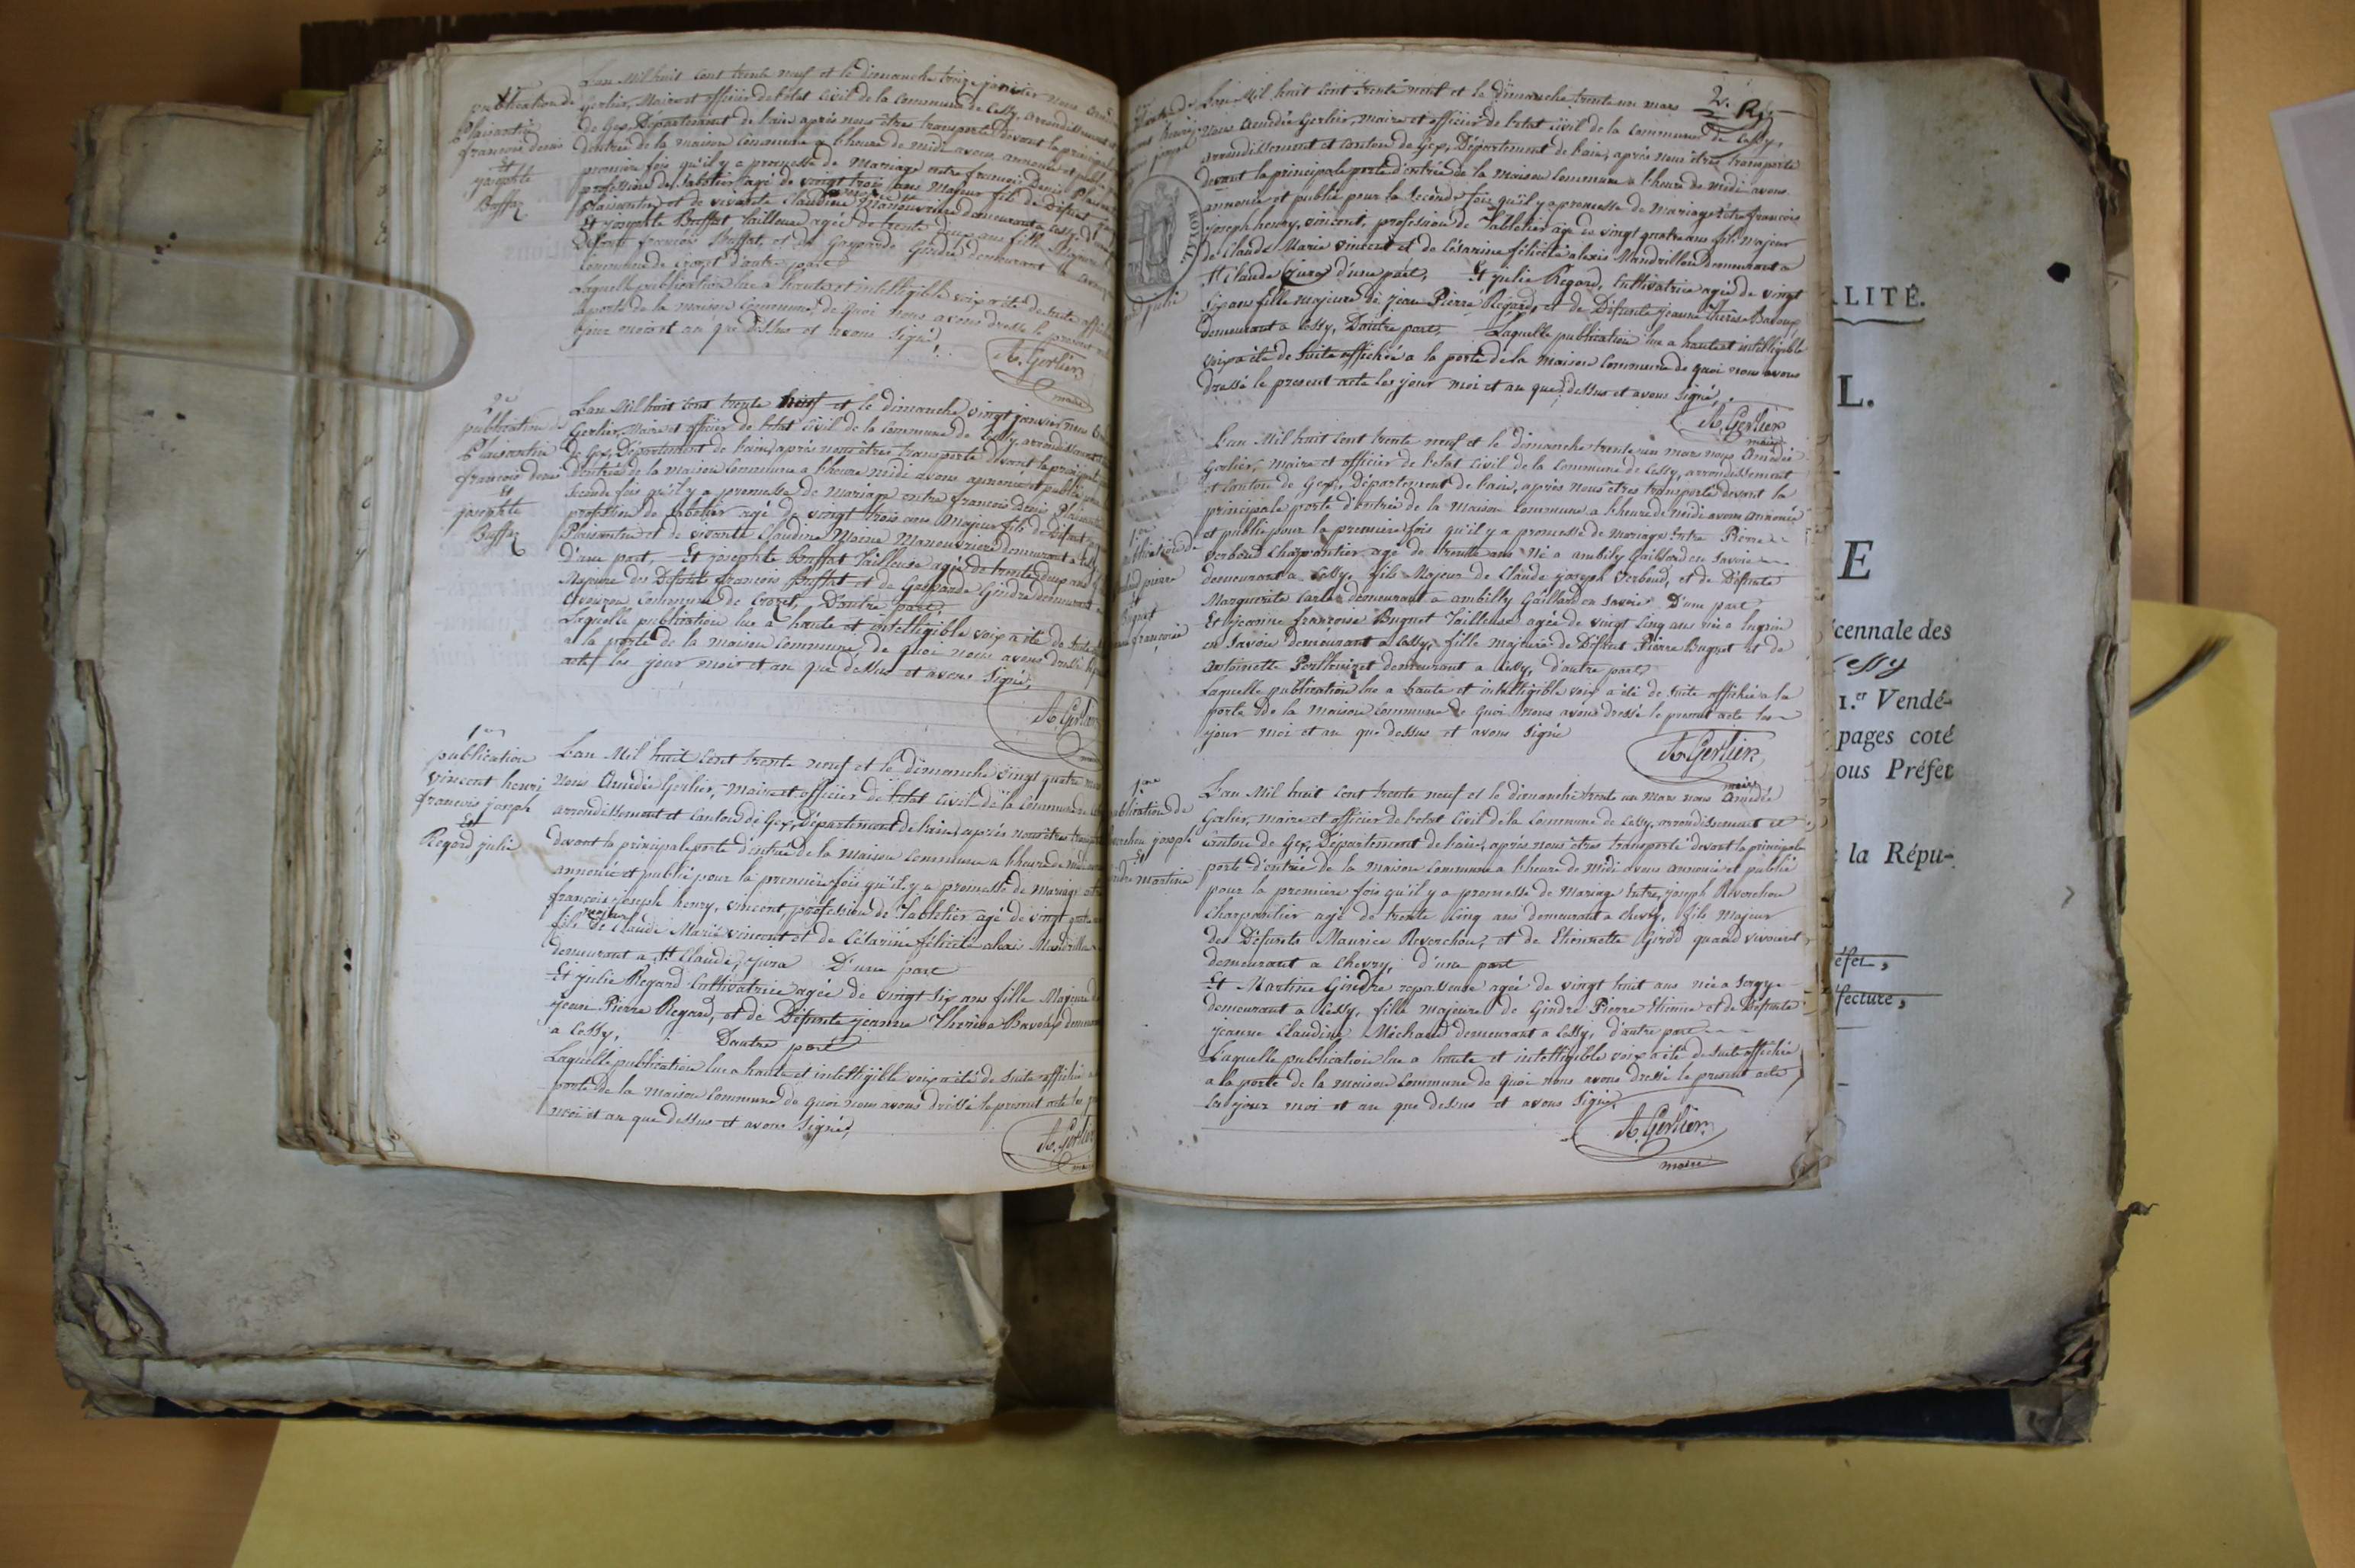 L'an Mil huit Cent trente neuf et le dimanche treize janvier nous
1re
publication de
Plaisantin
françois denis
Et
josephte
Buffaz
Gerlier, Maire et officier de l'état Civil de la Commune de Cessy, arrondissement
de Gex, Département de l'ain après nous être transporté devant la principale
d'entrée de la maison Commune a l'heure de midi avons annoncé et publié
première fois qu'il y a promesse de Mariage entre françois Denis
profession de Sabotier agé de vingt trois ans Majeur fils de Défunt
Plaisantin et de vivante Claudine Manouvrière demeurant a Cessy
Et josephte Buffat Tailleuse agée de trente deux ans fille Majeure
Défunts françois Buffat, et de Gasparde Gindre demeurant a
Commune de Crozet d'autre part
Laquelle publication lue a haute et intelligible voix a été de suite
a la porte de la maison Commune, de quoi nous avons dressé le present
jour mois et an que dessus et avons Signé,
A. Gerlier
maire
2e
publication de
Plaisantin
françois denis
Et
josephte
Buffaz
L'an Mil huit Cent trente neuf et le dimanche vingt janvier nous
Gerlier, Maire et officier de l'état Civil de la Commune de Cessy, arrondissement
de Gex, Département de l'ain, après nous être transporté devant la principale
d'entrée de la maison Commune a l'heure midi avons annoncé et publié
Seconde fois qu'il y a promesse de Mariage entre françois Denis Plaisantin
profession de Sabotier agé de vingt trois ans Majeur fils de Défunt
Plaisantin et de vivante Claudine Moine Manouvrière demeurant a Cessy
D'une part, Et josephte Buffat Tailleuse agée de trente deux ans
Majeure des Défunts françois Buffat et de Gasparde Gindre demeurant
Commune de Crozet, D'autre part,
Laquelle publication lue a haute et intelligible voix a été de suite
a la porte de la maison Commune, de quoi nous avons dressé le
acte les jour mois et an que dessus et avons Signé,
A. Gerlier
1ere
publication
vincent henri
françois joseph
Et
Regard julie
L'an Mil huit Cent trente neuf et le dimanche vingt quatre mars
Nous Amédée Gerlier, Maire et officier de l'état Civil de la Commune de
arrondissement et Canton de Gex, Département de l'ain, après nous être
devant la principale porte d'entrée de la Maison Commune a l'heure de midi
annoncé et publié pour la première fois qu'il y a promesse de Mariage entre
françois joseph henry, vincent, profession de Tabletier agé de vingt quatre
majeur
fils de Claude Marie vincent et de Césarine félicité alexis Mandrillon
demeurant a St Claude, jura D'une part
Et julie Regard Cultivatrice agée de vingt Six ans fille Majeure de
jean Pierre Regard, et de Défunte jeanne Thérèse Bavoux demeurant
a Cessy, D'autre part
Laquelle publication lue a haute et intelligible voix a été de suite affichée
porte de la maison Commune de quoi nous avons dressé le present acte les
moi et an que dessus et avons Signé,
A. Gerlier
maire
2.
L'an Mil huit Cent trente neuf et le dimanche trente un mars
Nous Amédée Gerlier, Maire et officier de l'état Civil de la Commune de Cessy,
arrondissement et Canton de Gex, Département de l'ain, après nous être transporté
devant la principale porte d'entrée de la maison Commune a l'heure de midi avons
annoncé et publié pour la Seconde fois qu'il y a promesse de Mariage Entre françois
joseph henry, vincent, profession de Tabletier agé de vingt quatre ans fils majeur
de Claude Marie vincent et de Césarine félicité alexis Mandrillon demeurant a
ROYAL
St Claude (jura) d'une part, Et julie Regard, Cultivatrice agée de vingt
Six ans fille Majeure de jean Pierre Regard, et de Défunte jeanne Thérèse Bavoux
julie
demeurant a Cessy, D'autre part, Laquelle publication lue a haute et intelligible
voix a été de Suite affichée a la porte de la Maison Commune de quoi nous avons
dressé le present acte les jour moi et an que dessus et avons Signé,
A. Gerlier
maire
L'an Mil huit Cent trente neuf et le dimanche trente un mars nous Amédée
Gerlier, maire et officier de l'etat Civil de la Commune de Cessy, arrondissement
et Canton de Gex, Département de l'ain, après nous êtres transporté devant la
principale porte d'entrée de la Maison Commune a l'heure de Midi avons Annoncé
1ere
publication de
pierre
Et
Buguet
françoise
et publié pour la première fois qu'il y a promesse de Mariage Entre Pierre
Verboud Charpentier agé de trente ans Né a ambilly Gaillard en Savoie
demeurant a Cessy, fils Majeur de Claude joseph Verboud, et de Défunte
Marguerite demeurant a ambilly Gaillard en Savoie D'une part
Et jeanne françoise Buguet Tailleuse agée de vingt Cinq ans née a lugrin
en Savoie demeurant a Cessy, fille majeure de Défunt Pierre Buguet et de
antoinette demeurant a Cessy, d'autre part,
Laquelle publication lue a haute et intelligible voix a été de Suite affichée a la
porte de la Maison Commune de quoi nous avons dressé le present acte les
jour moi et an que dessus et avons Signé
A. Gerlier
maire
1ere
publication de
Reverchon joseph
Et
Gindre martine
L'an Mil huit Cent trente neuf et le dimanche trente un Mars nous Amédée
Gerlier, maire et officier de l'etat Civil de la Commune de Cessy, arrondissement et
Canton de Gex, Département de l'ain, après nous êtres transporté devant la principale
porte d'entrée de la Maison Commune a l'heure de Midi avons annoncé et publié
pour la première fois qu'il y a promesse de Mariage Entre, joseph Reverchon
Charpentier agé de trente Cinq ans demeurant a Chevry, fils Majeur
des Défunts Maurice Reverchon, et de Etiennette Girod quand vivaient
demeurant a Chevry, d'une part
Et Martine Gindre repasseuse agée de vingt huit ans née a Sergy
demeurant a Cessy, fille majeure de Gindre Pierre Etienne et de Défunte
jeanne Claudine Méchaud demeurant a Cessy, d'autre part
Laquelle publication lue a haute et intelligible voix a été de Suite affichée
a la porte de la maison Commune de quoi nous avons dressé le present acte
les jour moi et an que dessus et avons Signé
A. Gerlier
maire
LITÉ.
L.
E
cennale des
Cessy
1.er Vendé-
pages coté
ous Préfet
la Répu-
éfet,
fecture,